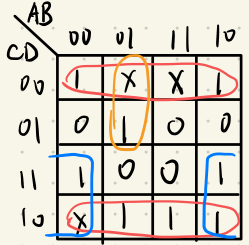 AB
CD 00 01 11 10
00 1 X X 1
01 0 1 0 0
11 1 0 0 1
10 X 1 1 1